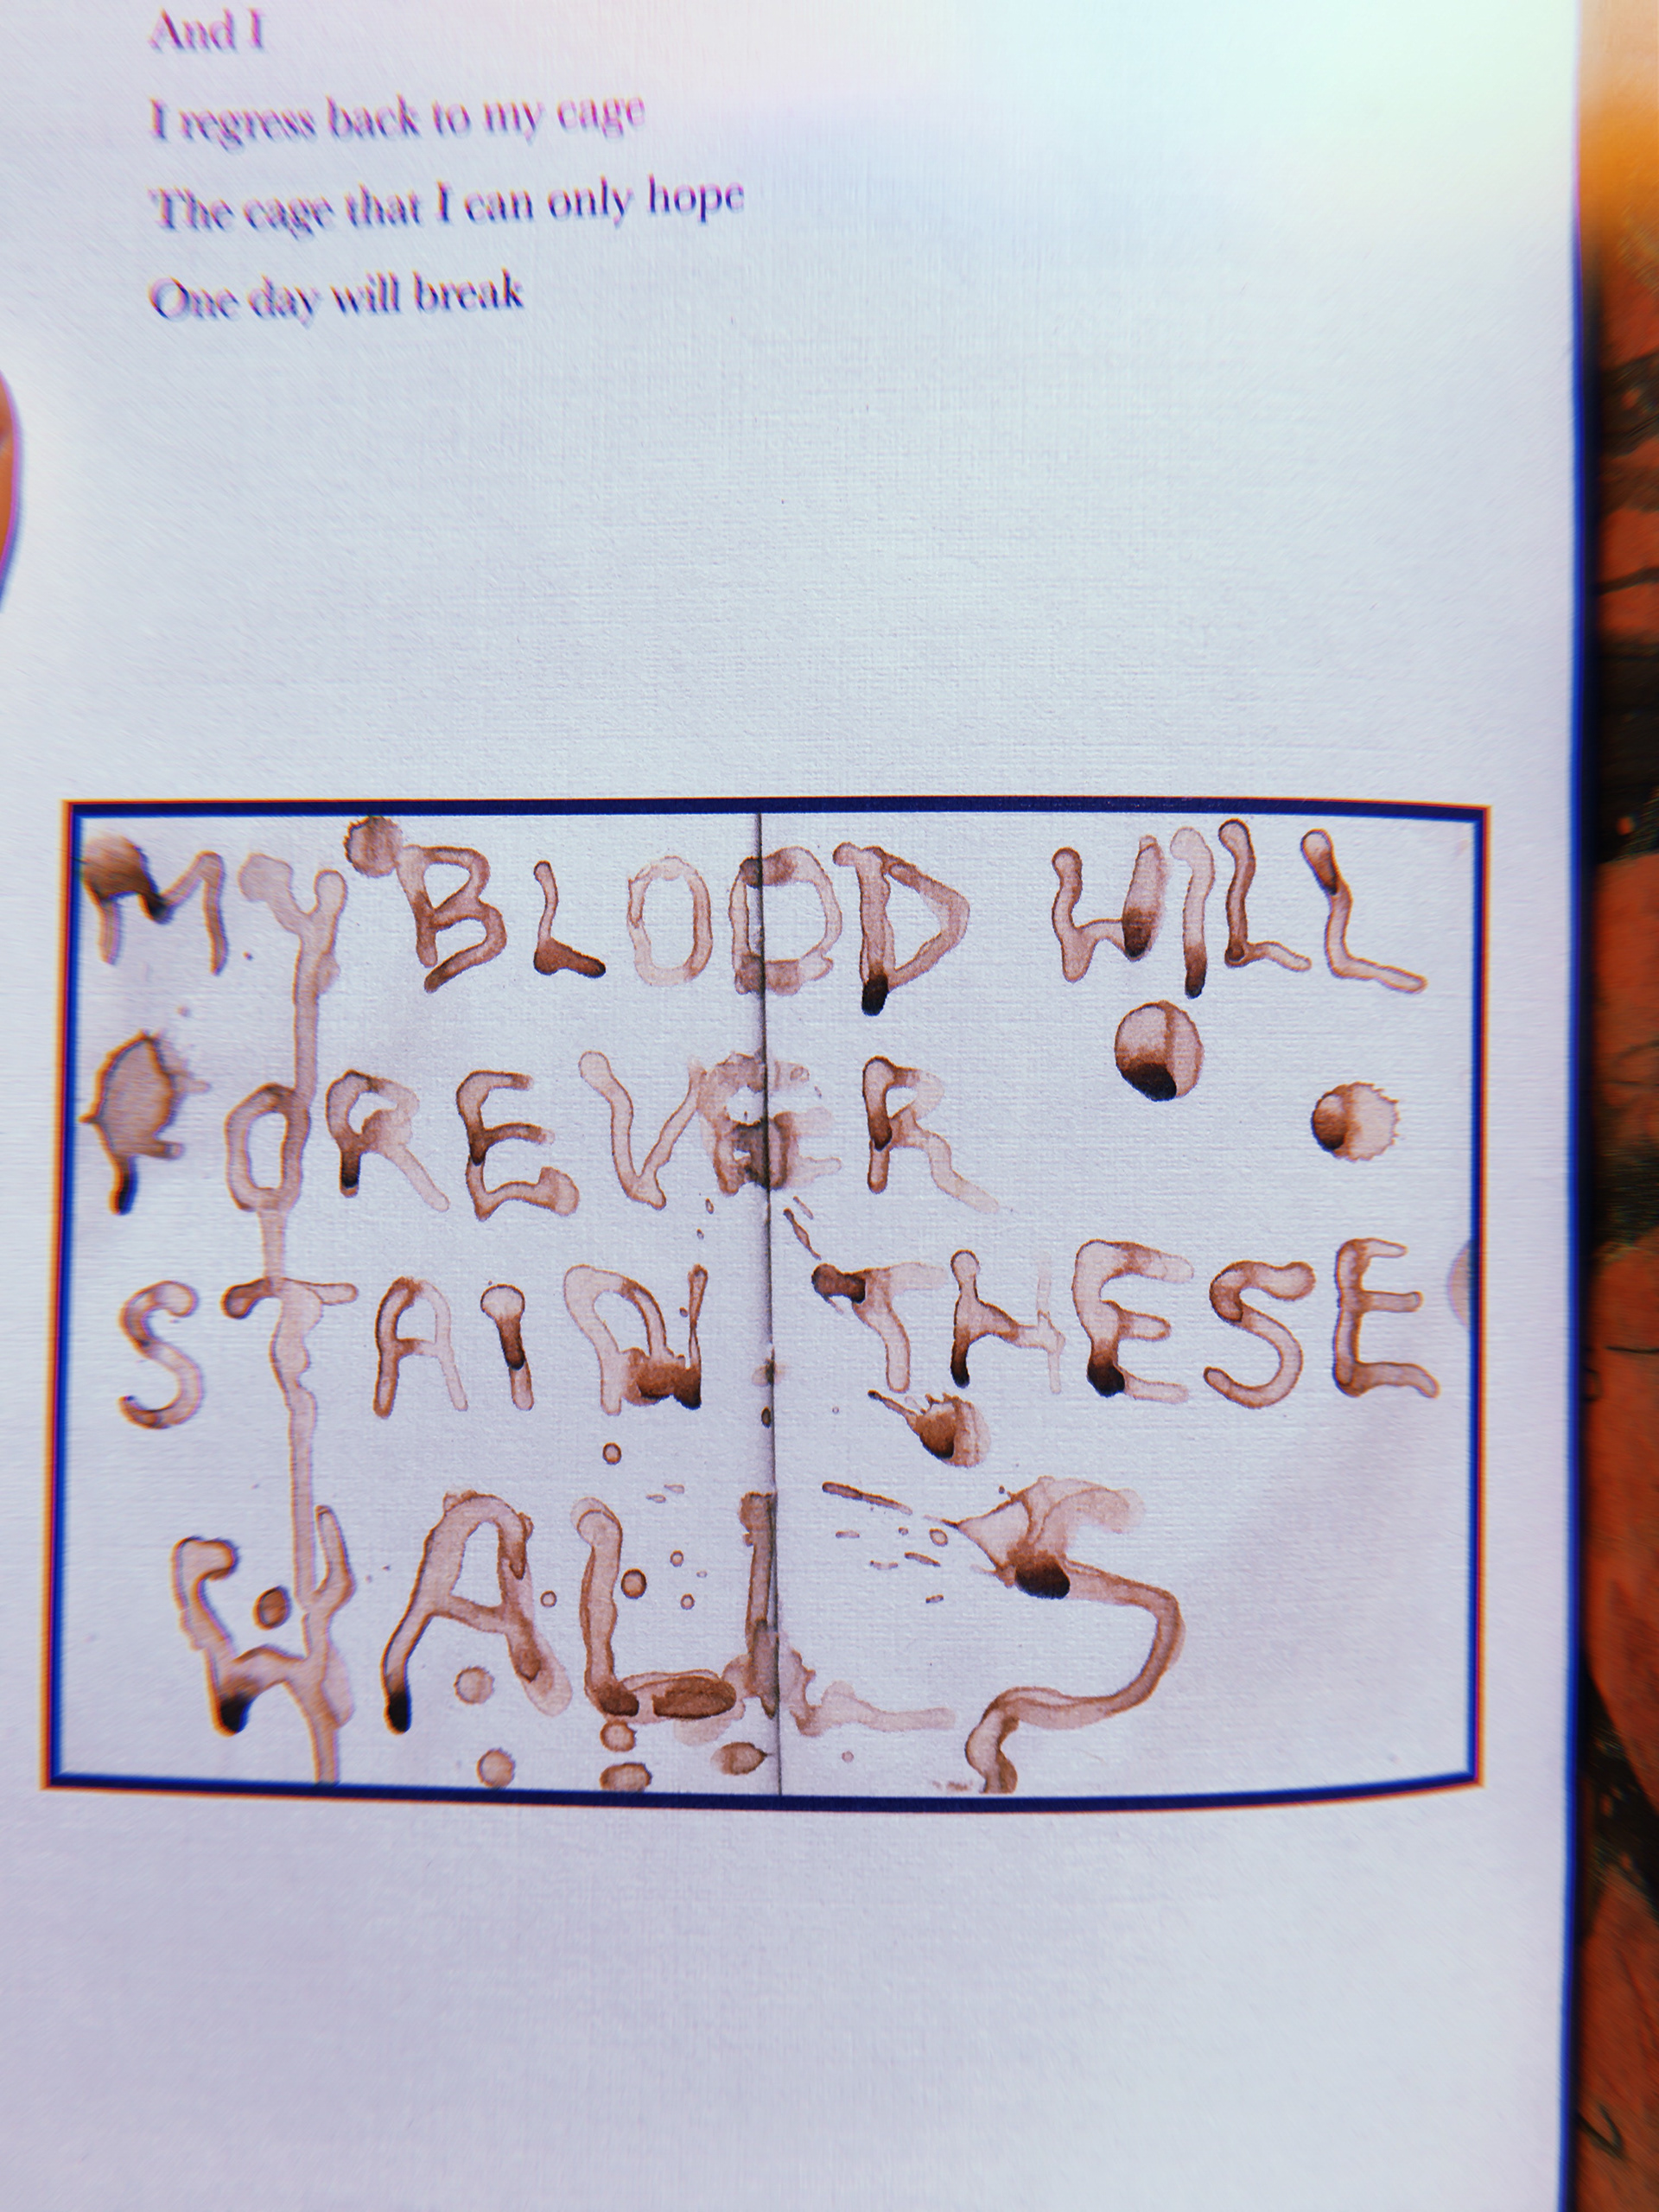 And I
I regress back to my cage
The cage that I can only hope
One day will break
MY BLOOD WILL
FOREVER
STAIN THESE
WALLS